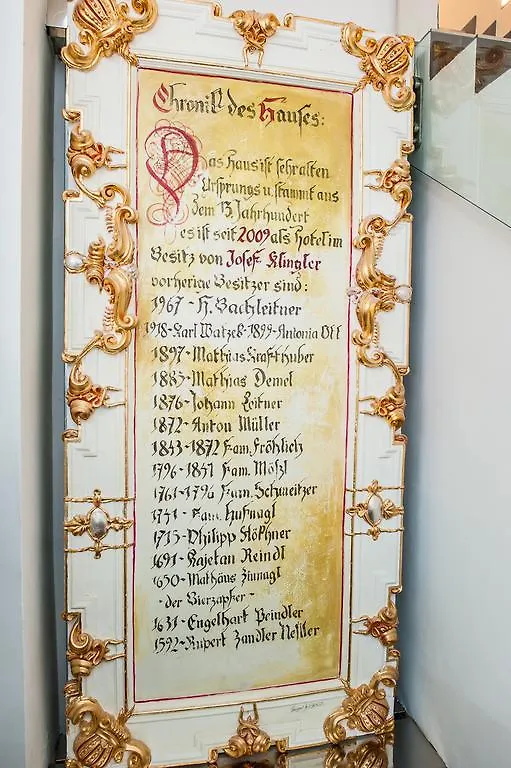 Chronik des Hauses:
Das Haus ist sehr alten
Ursprungs u. stammt aus
dem 13. Jahrhundert
es ist seit 2009 als Hotel im
Besitz von Josef Klingler
vorherige Besitzer sind:
1967 - H. Bachleitner
1918 - Karl Watzek - 1899 - Antonia Ott
1897 - Matthias Krafthuber
1883 - Mathias Demel
1876 - Johann Leitner
1872 - Anton Müller
1843 - 1872 Fam. Fröhlich
1796 - 1841 Fam. Mößl
1761 - 1796 Fam. Schweitzer
1741 - Fam. Hufnagl
1715 - Philipp Stökhner
1691 - Kajetan Reindl
1650 - Mathäus Zinnagl
- der Bierzapfer -
1631 - Engelhart Peindler
1592 - Rupert Zandler